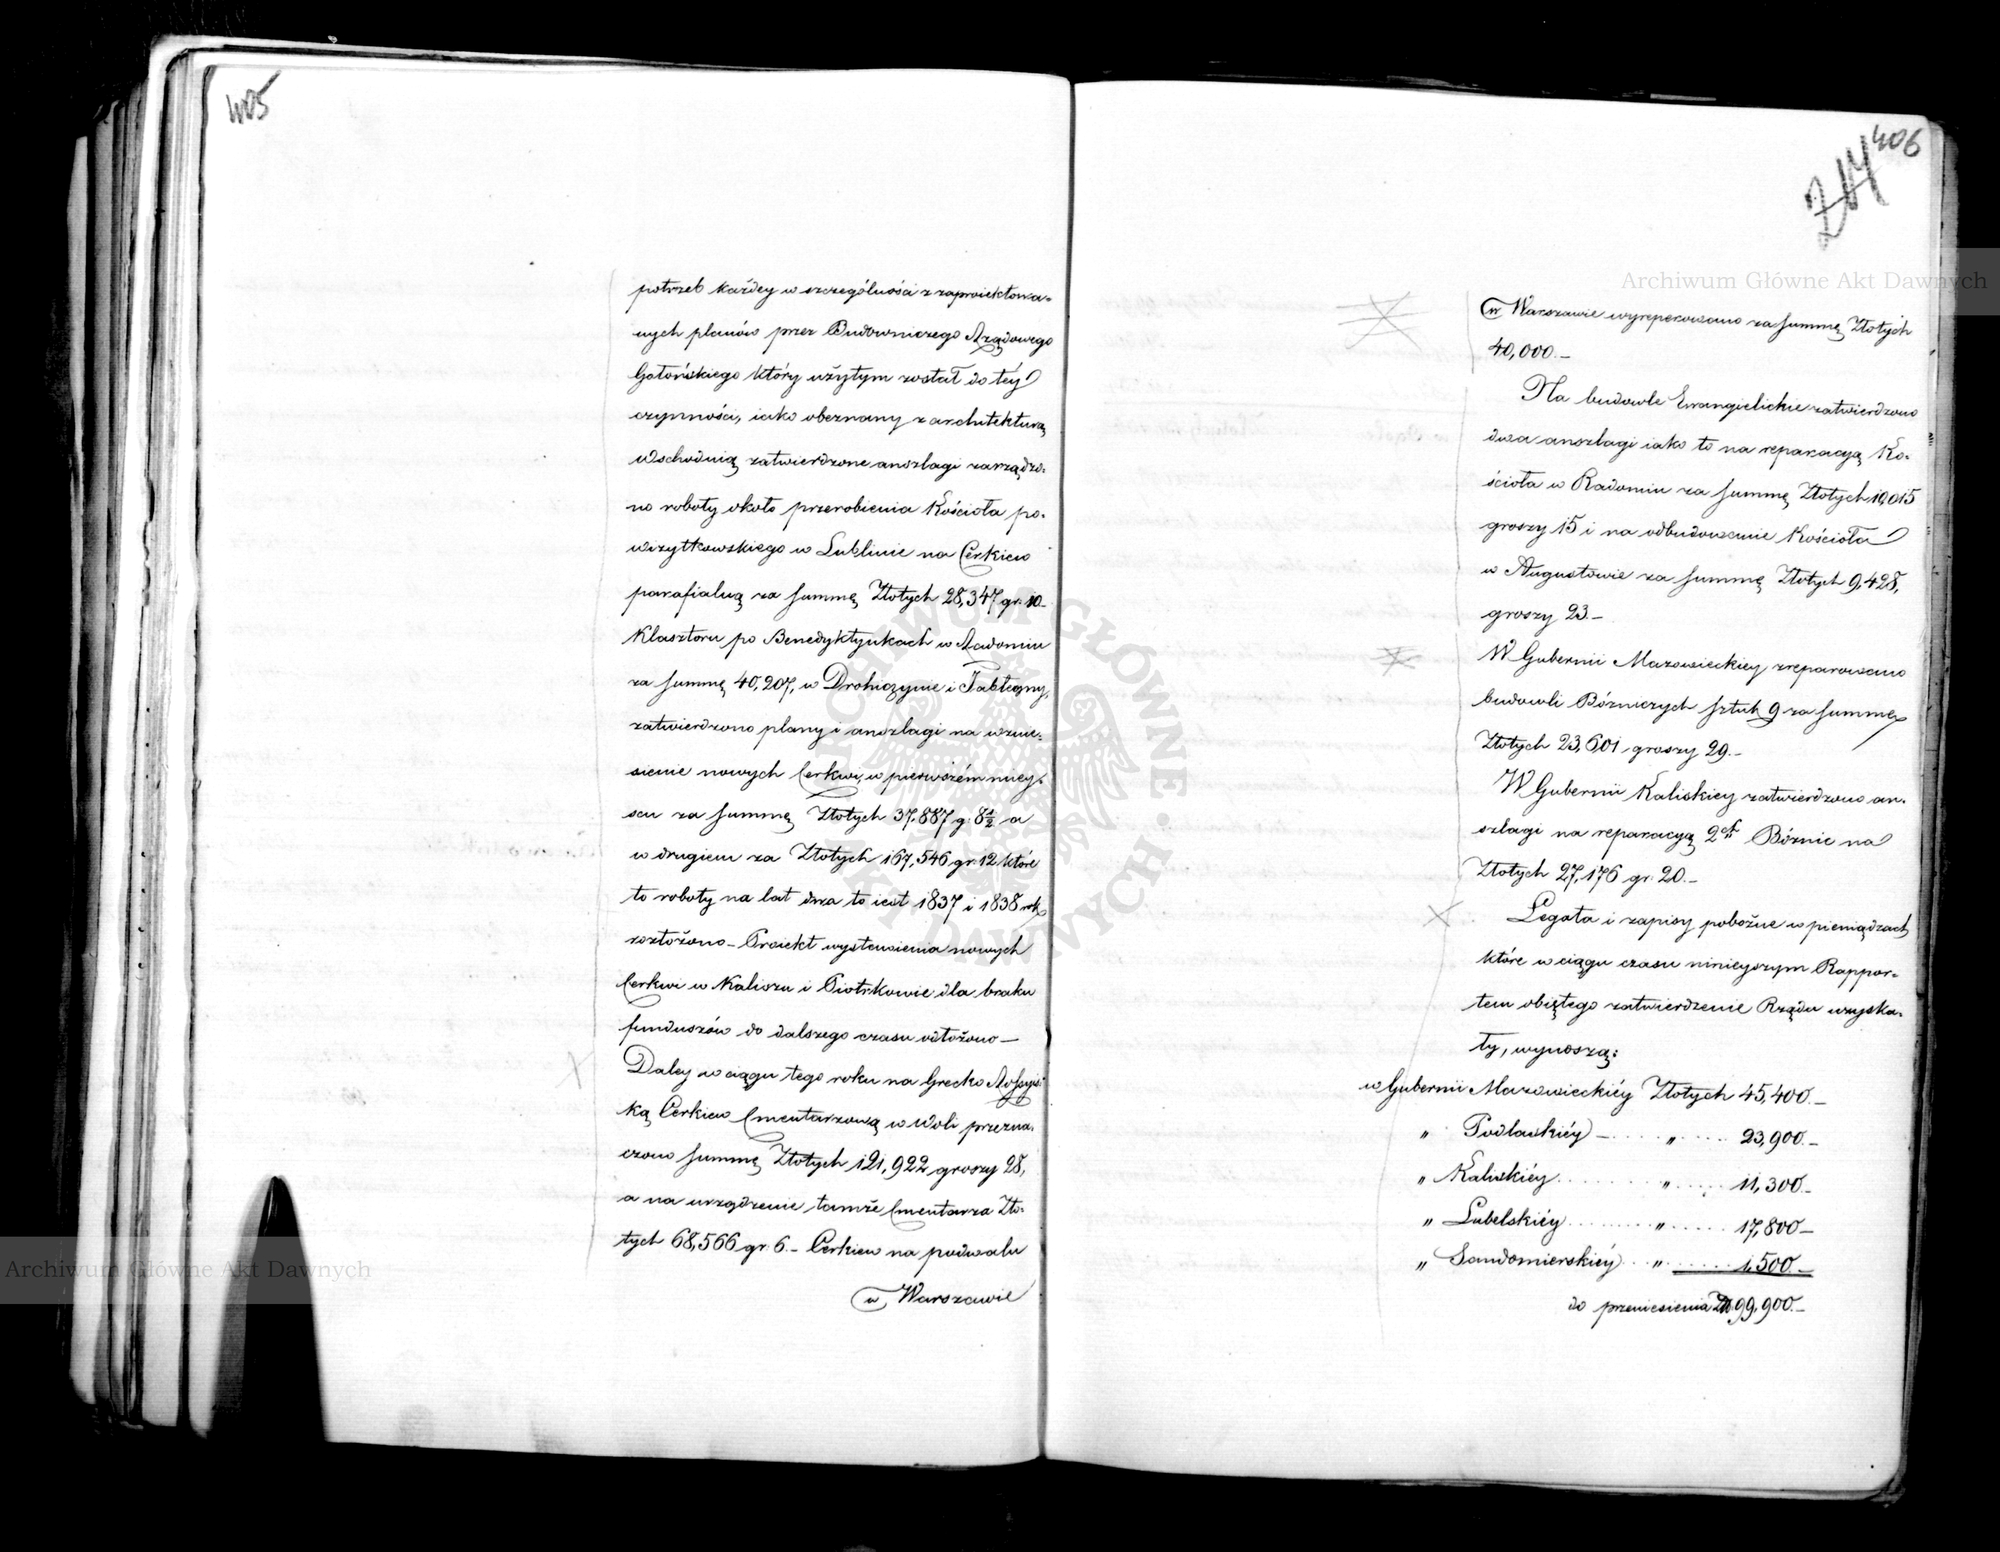 405
potrzeb każdey w szczególności z zaproiektowa-
nych planów przez Budowniczego Rządowego
Gołońskiego który użytym został do téy
czynności, iako obeznany z architekturą
Wschodnią zatwierdzone anszlagi zarządzo-
no roboty około przerobienia Kościoła po-
wizytkowskiego w Lublinie na Cerkiew
parafialną za summę Złotych 28,347 gr. 10-
Klasztoru po Benedyktynkach w Radomiu
za summę 40,207, w Drohiczynie i Jabłeczny,
zatwierdzono plany i anszlagi na wznie-
sienie nowych Cerkwi, w pierwszém miey-
scu za summę Złotych 37,887 g. 8½ a
w drugiem za Złotych 167,546 gr. 12 które
to roboty na lat dwa to iest 1837 i 1838 rok
rozłożono – Proiekt wystawienia nowych
Cerkwi w Kaliszu i Piotrkowie dla braku
funduszów do dalszego czasu odłożono –
Daley w ciągu tego roku na Grecko Rossyis-
ką Cerkiew Cmentarzową w Woli przezna-
czono summę Złotych 121,922 groszy 28,
a na urządzenie tamże Cmentarza Zło-
tych 68,566 gr. 6. – Cerkiew na podwalu
w Warszawie
406
214
w Warszawie wyreperowano za summę Złotych
40,000.–
Na budowle Ewangielickie zatwierdzono
dwa anszlagi iako to na reparacyą Ko-
ścioła w Radomiu za summę Złotych 10,015
groszy 15 i na odbudowanie Kościoła
w Augustowie za summę Złotych 9,428,
groszy 23.–
W Gubernii Mazowieckiey zreparowano
budowli Bóżniczych sztuk 9 za summę
Złotych 23,601 groszy 29.–
W Gubernii Kaliskiey zatwierdzono an-
szlagi na reparacyą 2ch Bóżnic na
Złotych 27,176 gr. 20.–
Legata i zapisy pobożne w pieniądzach
które w ciągu czasu ninieyszym Rappor-
tem obiętego zatwierdzenie Rządu uzyska-
ły, wynoszą:
w Gubernii Mazowieckiéy Złotych 45,400.–
" Podlaskiéy – ..... " ..... 23,900.–
" Kaliskiéy .......... " ..... 11,300.–
" Lubelskiéy ......... " ...... 17,800 –
" Sandomierskiéy ... " ....... 1,500.–
do przeniesienia Zło 99,900.–
Archiwum Główne Akt Dawnych
Archiwum Główne Akt Dawnych
ARCHIWUM GŁÓWNE AKT DAWNYCH